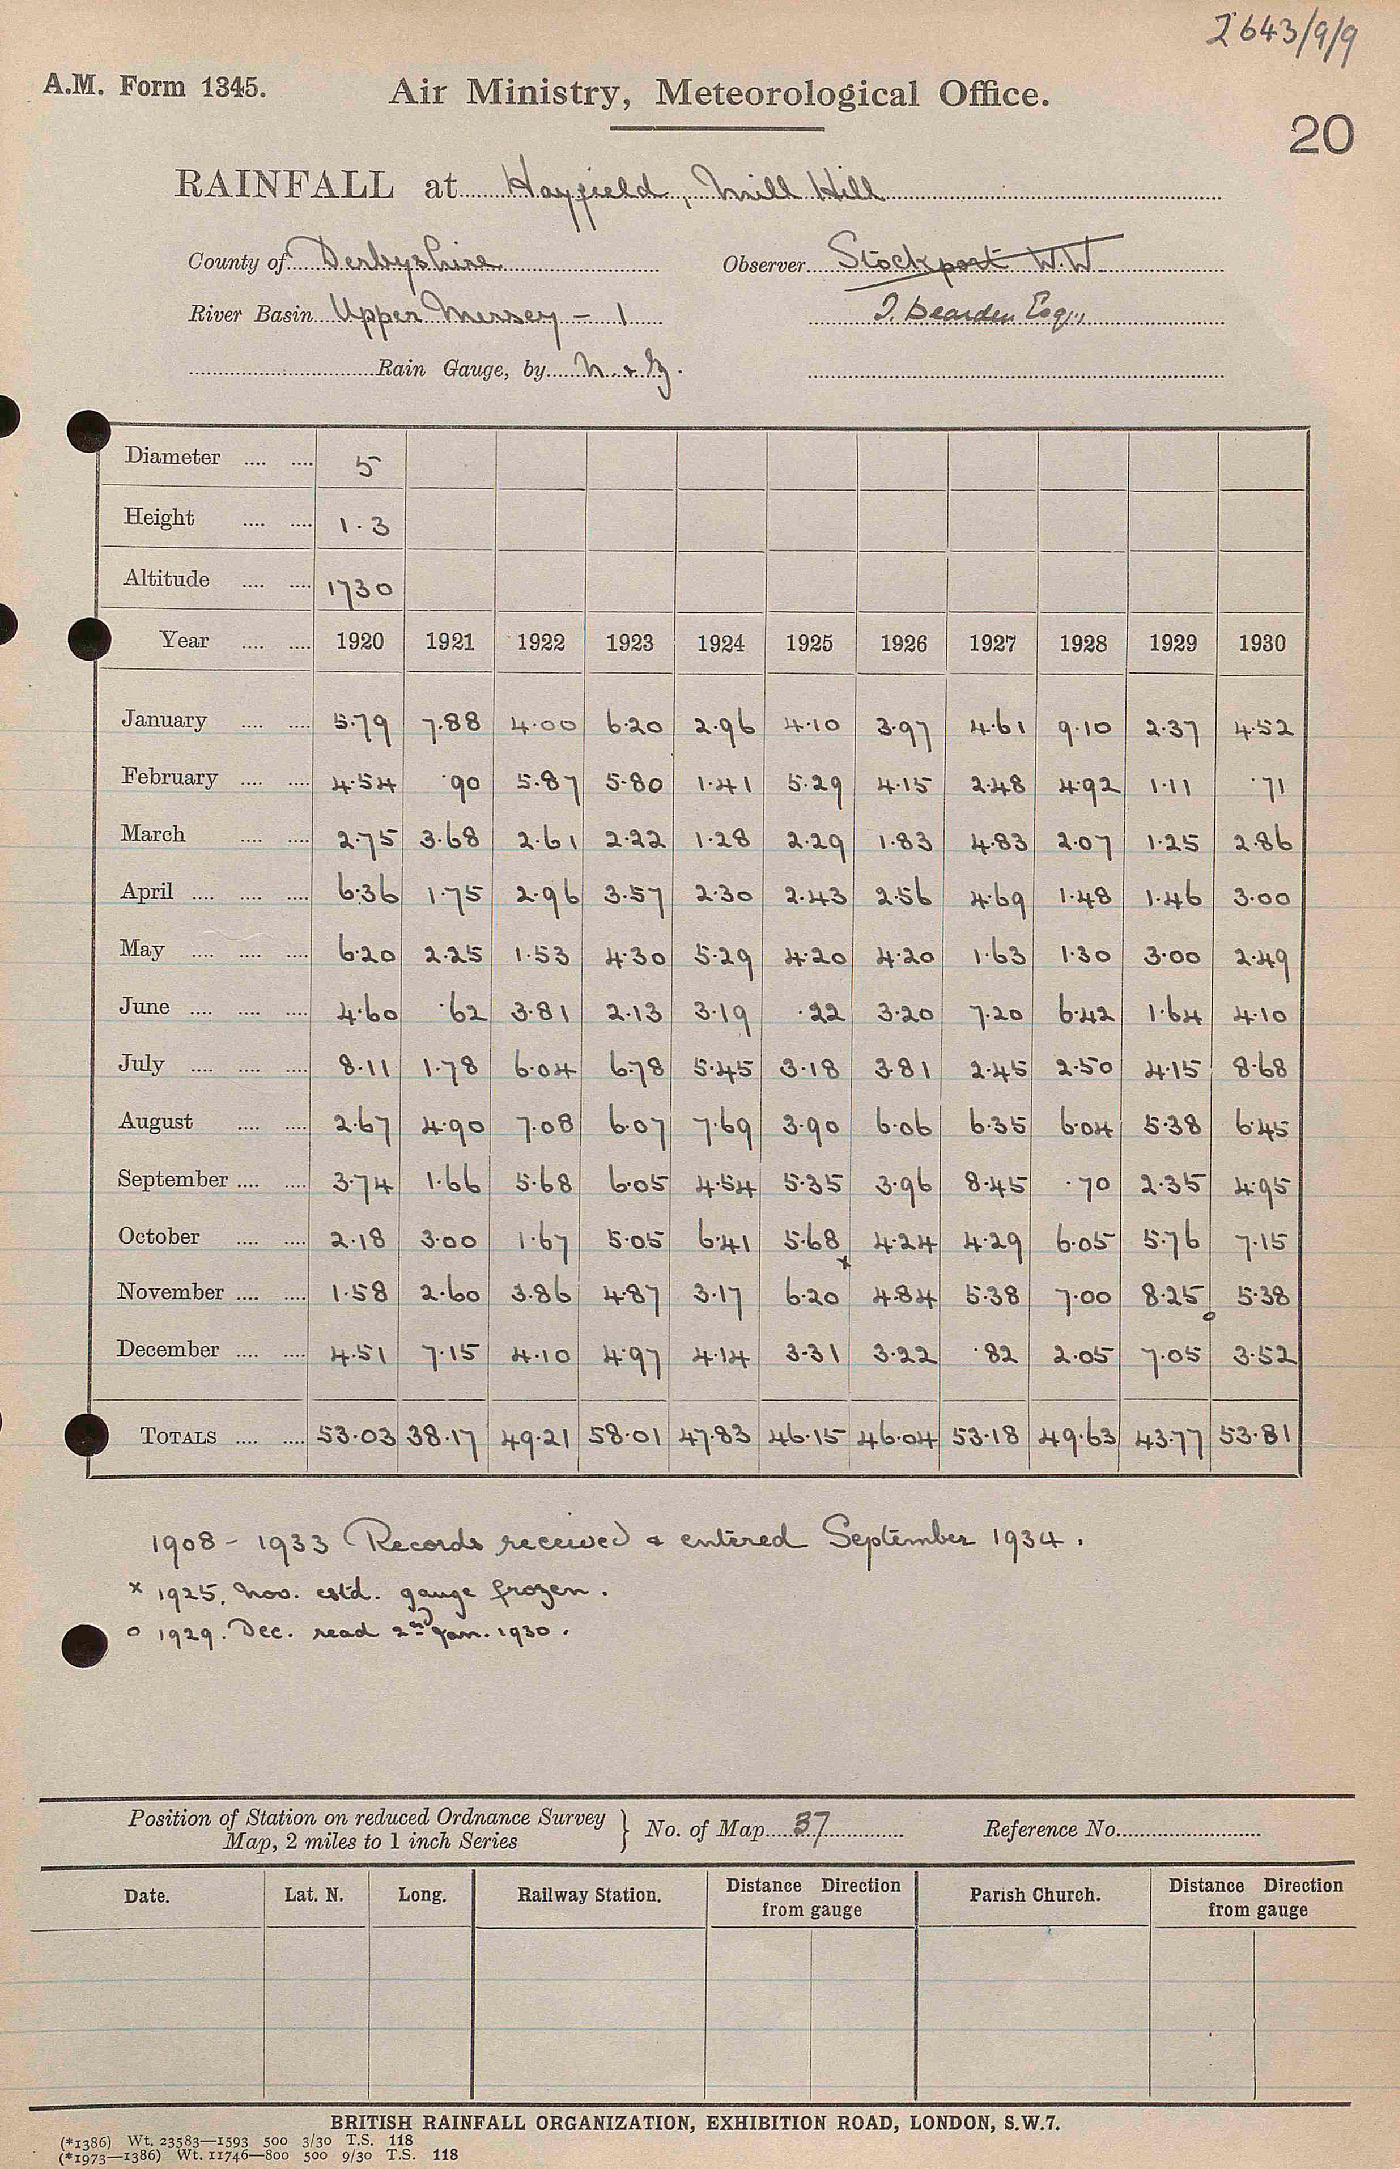 2643/9/9
A.M. Form 1345.
Air Ministry, Meteorological Office.
20
RAINFALL at Hayfield, Mill Hill
County of Derbyshire Observer Stockport W.W.
River Basin Upper Mersey - 1 J. Dearden Esq.,
Rain Gauge, by N & Z.
Diameter .... .... 5
Height .... .... 1.3
Altitude .... .... 1730
Year .... .... 1920 1921 1922 1923 1924 1925 1926 1927 1928 1929 1930
January .... .... 5.79 7.88 4.00 6.20 2.96 4.10 3.97 4.61 9.10 2.37 4.52
February .... .... 4.54 .90 5.87 5.80 1.41 5.29 4.15 2.48 4.92 1.11 .71
March .... .... 2.75 3.68 2.61 2.22 1.28 2.29 1.83 4.83 2.07 1.25 2.86
April .... .... .... 6.36 1.75 2.96 3.57 2.30 2.43 2.56 4.69 1.48 1.46 3.00
May .... .... .... 6.20 2.25 1.53 4.30 5.29 4.20 4.20 1.63 1.30 3.00 2.49
June .... .... .... 4.60 .62 3.81 2.13 3.19 .22 3.20 7.20 6.42 1.64 4.10
July .... .... .... 8.11 1.78 6.04 6.78 5.45 3.18 3.81 2.45 2.50 4.15 8.68
August .... .... 2.67 4.90 7.08 6.07 7.69 3.90 6.06 6.35 6.04 5.38 6.45
September .... .... 3.74 1.66 5.68 6.05 4.54 5.35 3.96 8.45 .70 2.35 4.95
October .... .... 2.18 3.00 1.67 5.05 6.41 5.68 4.24 4.29 6.05 5.76 7.15
November .... .... 1.58 2.60 3.86 4.87 3.17 6.20x 4.84 5.38 7.00 8.25 5.38
December .... .... 4.51 7.15 4.10 4.97 4.14 3.31 3.22 .82 2.05 7.05o 3.52
TOTALS .... .... 53.03 38.17 49.21 58.01 47.83 46.15 46.04 53.18 49.63 43.77 53.81
1908 - 1933 Records received & entered September 1934.
x 1925, Nov. estd. gauge frozen.
o 1929. Dec. read 2nd Jan. 1930.
Position of Station on reduced Ordnance Survey
Map, 2 miles to 1 inch Series } No. of Map 37 Reference No.
Date. Lat. N. Long. Railway Station. Distance Direction from gauge Parish Church. Distance Direction from gauge
BRITISH RAINFALL ORGANIZATION, EXHIBITION ROAD, LONDON, S.W.7.
(*1386) Wt. 23583—1593 500 3/30 T.S. 118
(*1973—1386) Wt. 11746—800 500 9/30 T.S. 118